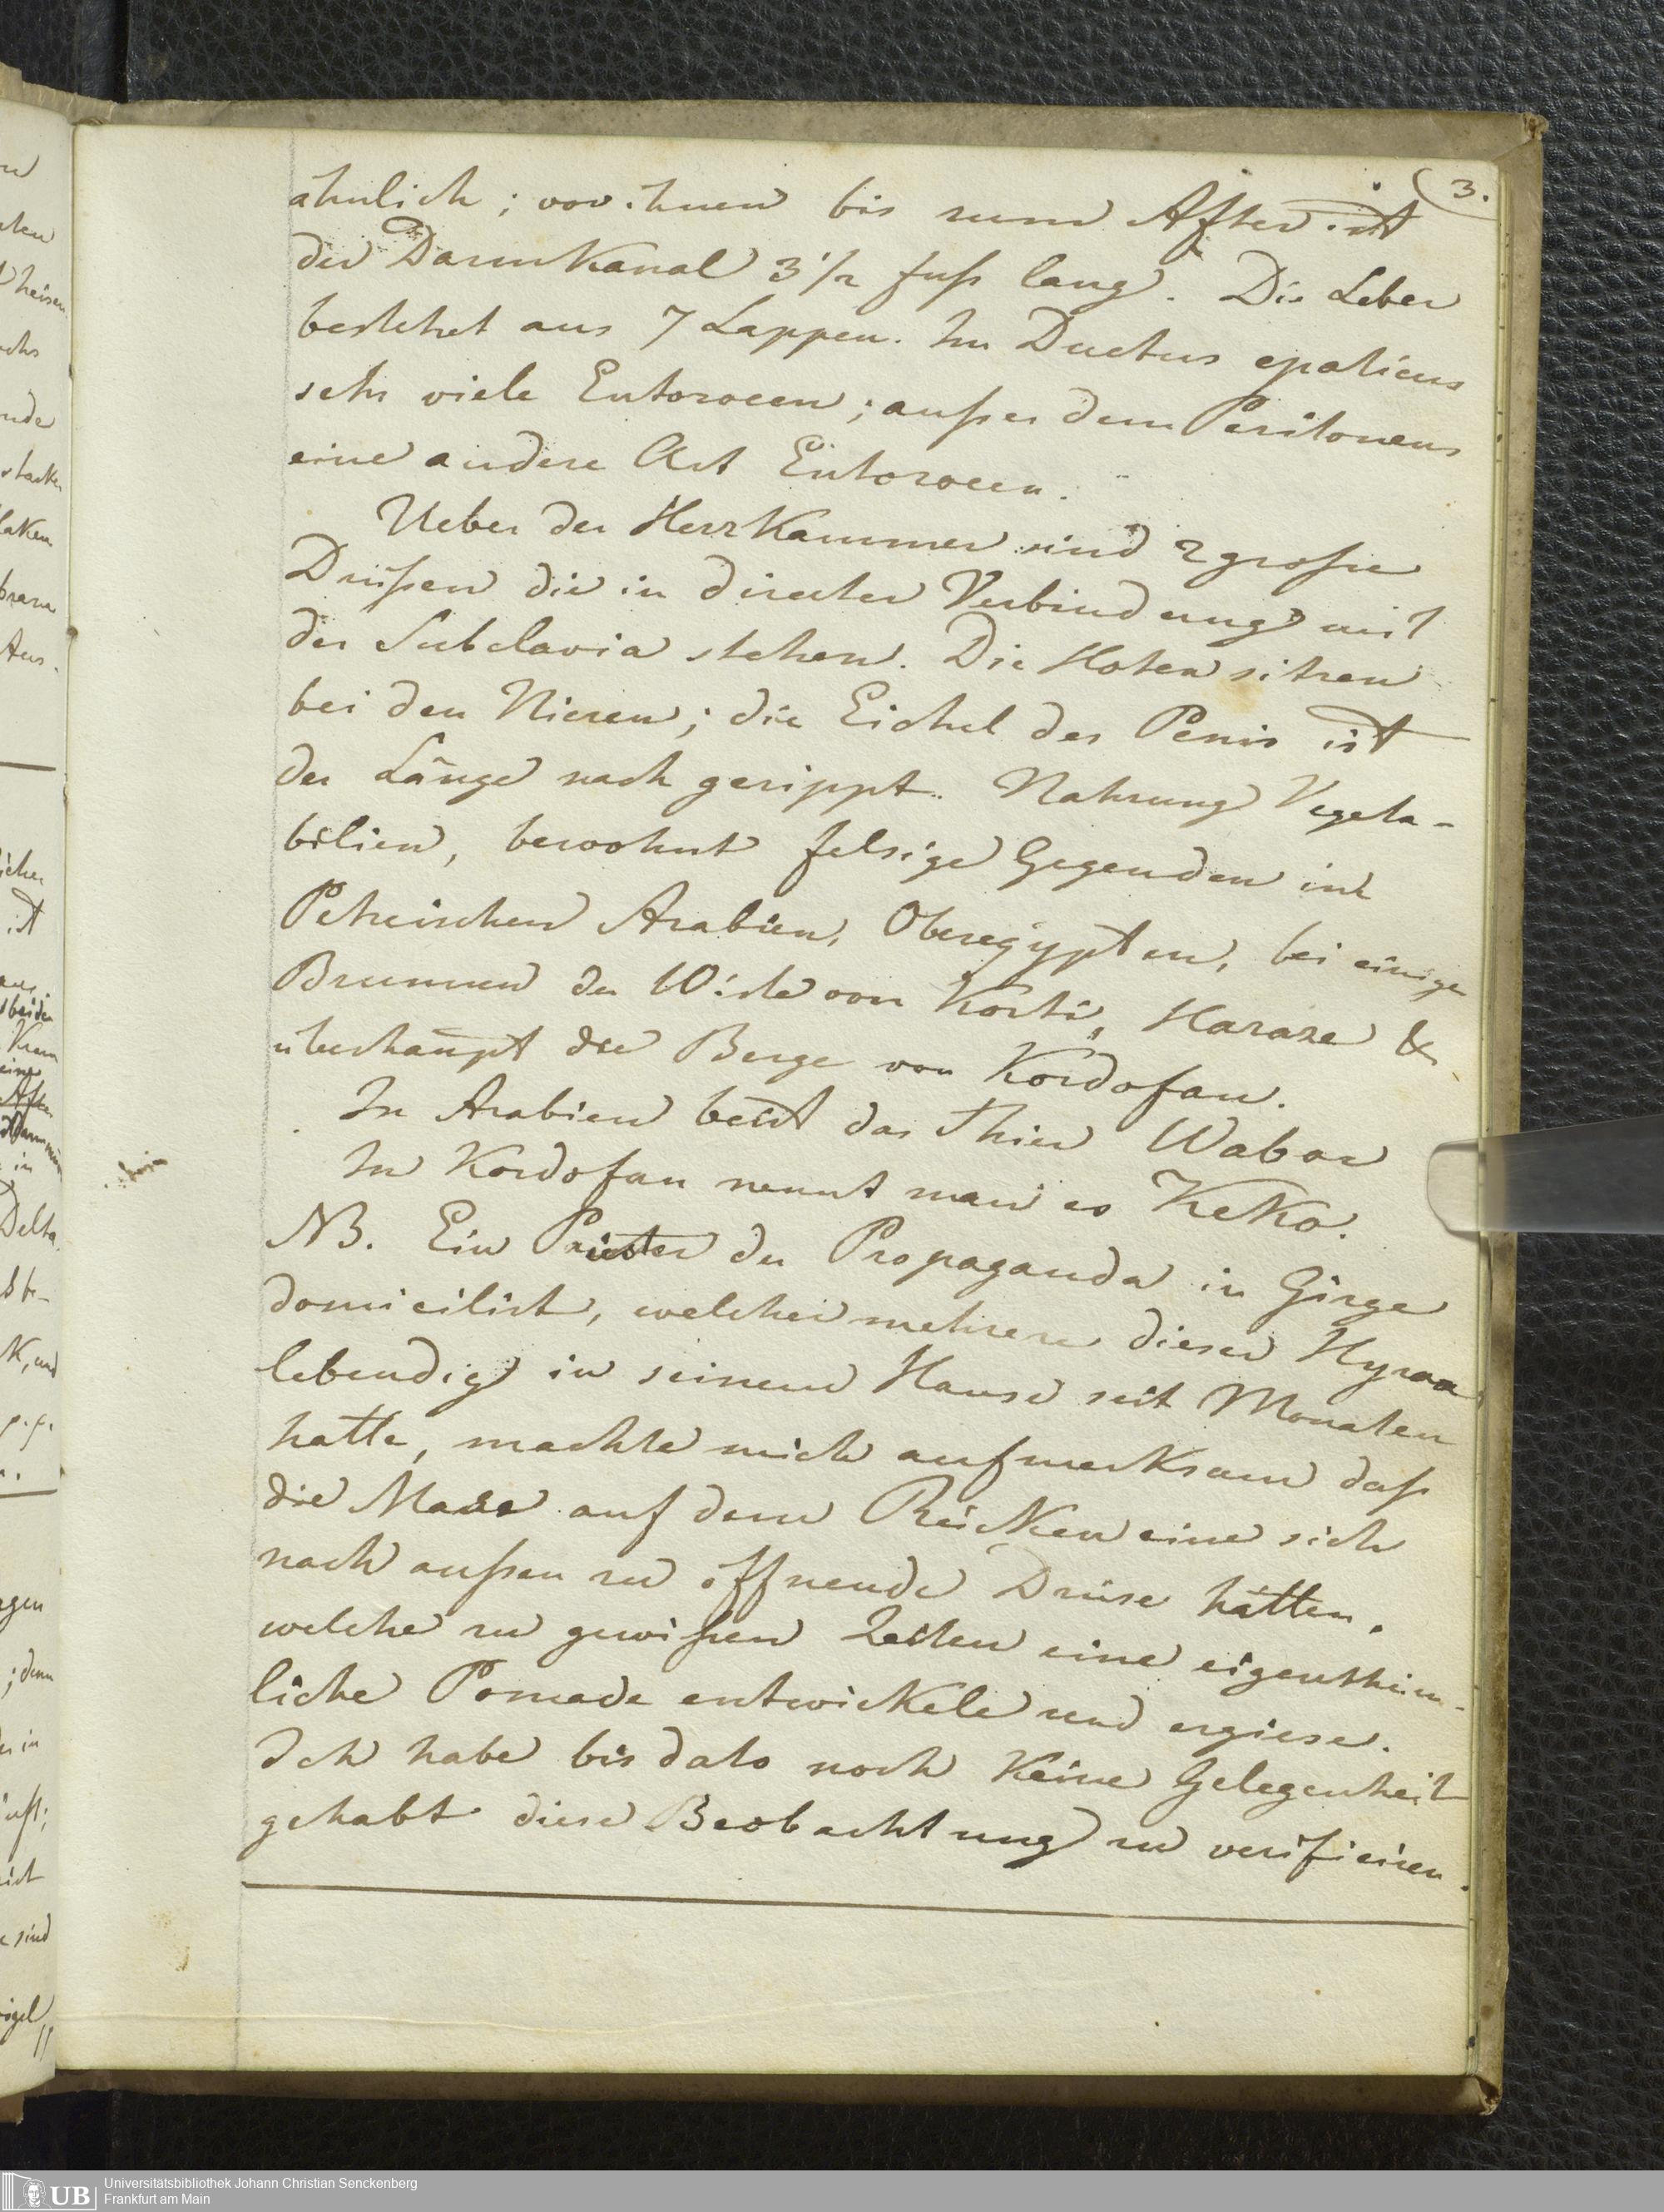 3.
ähnlich; von ihnen bis zum After ist
der Darmkanal 3 1/2 fuß lang. Die Leber
bestehet aus 7 Lappen. Im Ductus epaticus
sehr viele Entozoeen; außer dem Peritoneus
eine andere Art Entozoeen.
Ueber der Herzkammer sind 2 große
Drüßen die in directer Verbindung mit
der Subclavia stehen. Die Hoten sitzen
bei den Nieren; die Eichel des Penis ist
der Länge nach gerippt. Nahrung Vegeta-
bilien, bewohnt felsige Gegenden im
Petreischen Arabien, Oberegÿpten, bei einigen
Brunnen der Wüste von Korti, Haraze &
überhaupt die Berge von Kordofan.
In Arabien heist das Thier Wabor
In Kordofan nennt man es KeKo.
NB. Ein Priester der Propaganda in Girge
domicilirt, welcher mehrere dieser Hyrax
lebendig in seinem Hause seit Monaten
hatte, machte mich aufmerksam daß
die auf dem Rücken eine sich
nach außen zu öffnende Drüse hätten,
welche zu gewißen Zeiten eine eigenthüm-
liche Pomade entwickele und ergiese.
Ich habe bis dato noch keine Gelegenheit
gehabt diese Beobachtung zu verificiren.
UB
Universitätsbibliothek Johann Christian Senckenberg
Frankfurt am Main